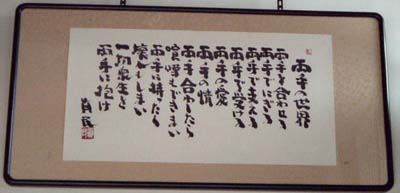 両手の世界
両手を合わせる
両手でにぎる
両手で支える
両手で受ける
両手の愛
両手の情
両手合わしたら
喧嘩もできまい
両手に持ったら
壊れもしまい
一切衆生を
両手に抱け